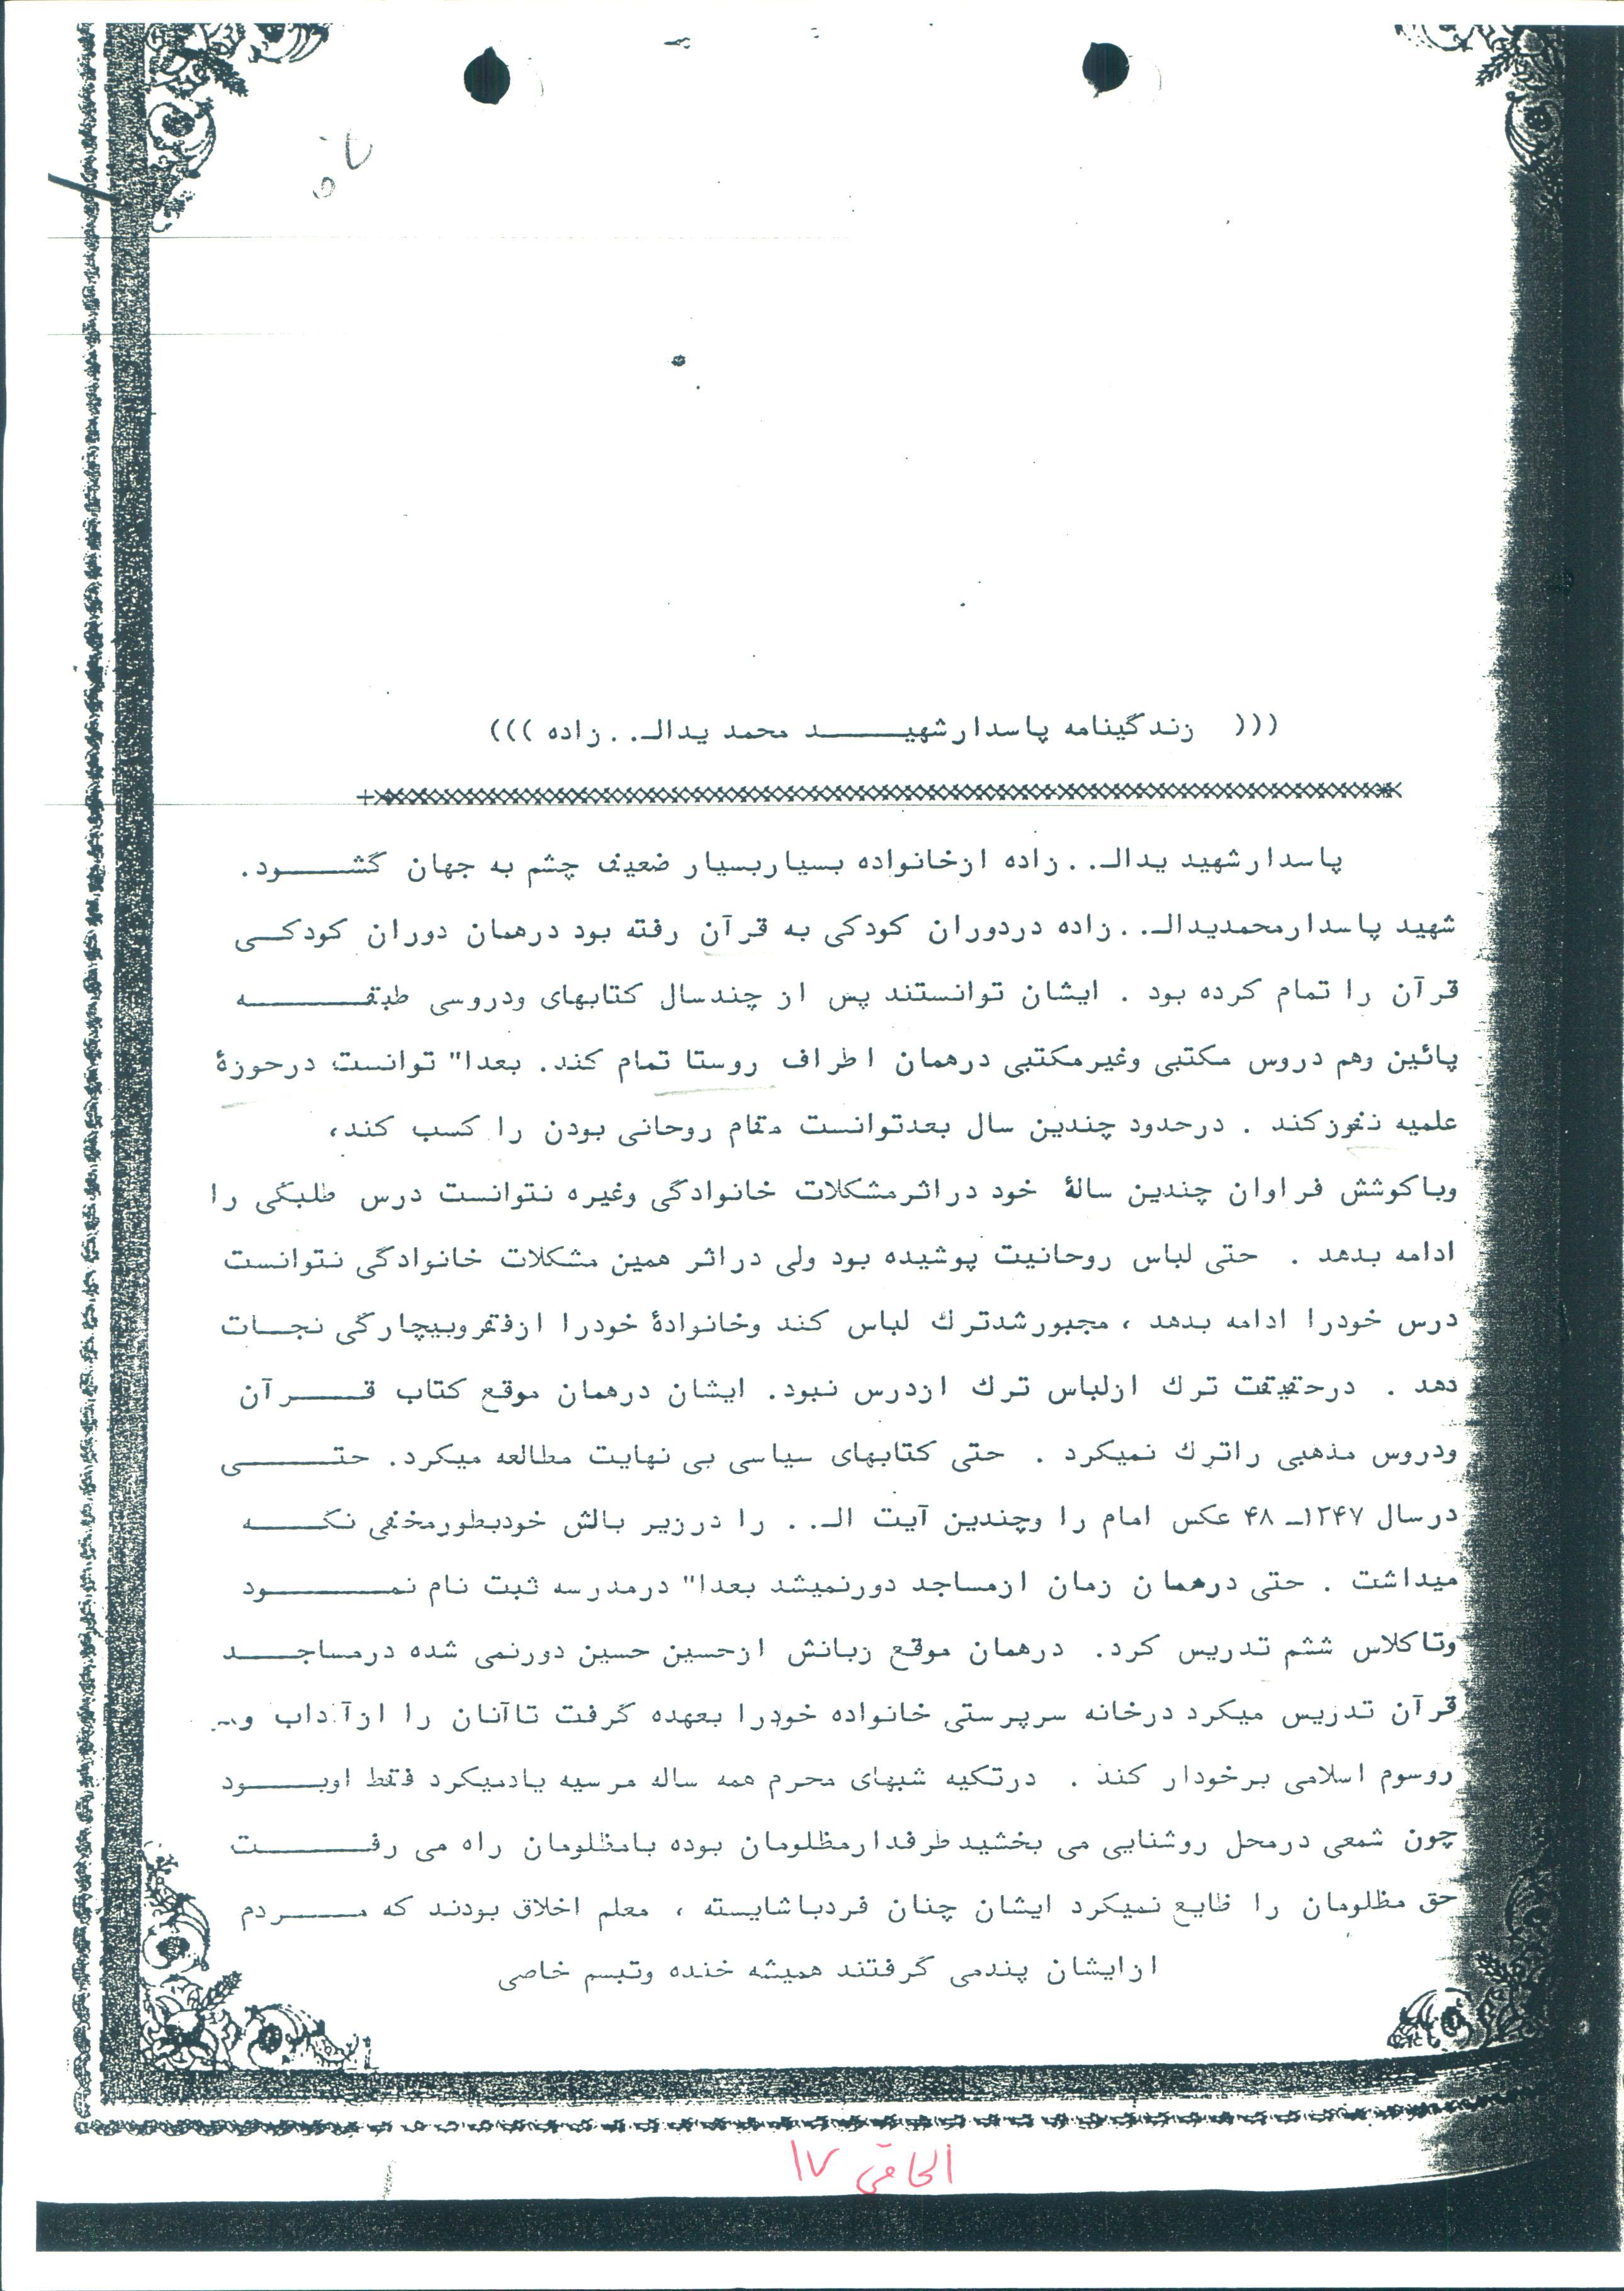 ((( زندگینامه پاسدار شهیـــــد محمد یدالـ.. زاده )))
پاسدار شهید یدالـ.. زاده از خانواده بسیار بسیار ضعیف چشم به جهان گشـــود.
شهید پاسدار محمد یدالـ.. زاده در دوران کودکی به قرآن رفته بود در همان دوران کودکــی
قرآن را تمام کرده بود . ایشان توانستند پس از چند سال کتابهای و دروسی طبقـــــه
پائین و هم دروس مکتبی و غیر مکتبی در همان اطراف روستا تمام کند. بعدا" توانست در حوزهٔ
علمیه نفوز کند . در حدود چندین سال بعد توانست مقام روحانی بودن را کسب کند،
و با کوشش فراوان چندین سالهٔ خود در اثر مشکلات خانوادگی و غیره نتوانست درس طلبگی را
ادامه بدهد . حتی لباس روحانیت پوشیده بود ولی در اثر همین مشکلات خانوادگی نتوانست
درس خود را ادامه بدهد ، مجبور شد ترك لباس کند و خانوادهٔ خود را از فقر و بیچارگی نجــات
دهد . در حقیقت ترك از لباس ترك از درس نبود. ایشان در همان موقع کتاب قـــرآن
و دروس مذهبی را ترك نمیکرد . حتی کتابهای سیاسی بی نهایت مطالعه میکرد. حتـــــی
در سال ۱۳۴۷ـ ۴۸ عکس امام را و چندین آیت الـ.. را در زیر بالش خود بطور مخفی نگـــه
میداشت . حتی در همان زمان از مساجد دور نمیشد بعدا" در مدرسه ثبت نام نمـــــود
و تا کلاس ششم تدریس کرد. در همان موقع زبانش از حسین حسین دور نمی شده در مساجـــد
قرآن تدریس میکرد در خانه سرپرستی خانواده خود را بعهده گرفت تا آنان را از آداب و
روسوم اسلامی برخودار کند . در تکیه شبهای محرم همه ساله مرسیه یاد میکرد فقط او بـــود
چون شمعی در محل روشنایی می بخشید طرفدار مظلومان بوده با مظلومان راه می رفـــــت
حق مظلومان را ظایع نمیکرد ایشان چنان فرد با شایسته ، معلم اخلاق بودند که مـــردم
از ایشان پند می گرفتند همیشه خنده و تبسم خاصی
الحاقی ۱۷